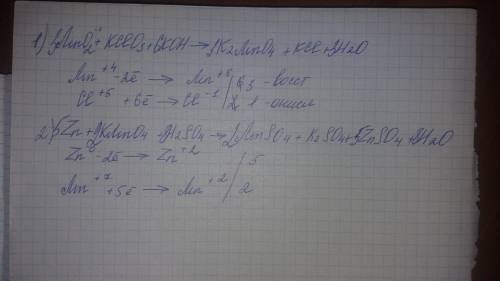 1) 3MnO2 + KClO3 + 6KOH → 3K2MnO4 + KCl + 3H2O
Mn+4 -2e̅ → Mn+6 | 6 3 - восст
Cl+5 + 6e̅ → Cl-1 | 2 1 - окисл
2) 5Zn + 2KMnO4 + 8H2SO4 → 2MnSO4 + K2SO4 + 5ZnSO4 + 8H2O
Zn0 -2e̅ → Zn+2 | 5
Mn+7 +5e̅ → Mn+2 | 2